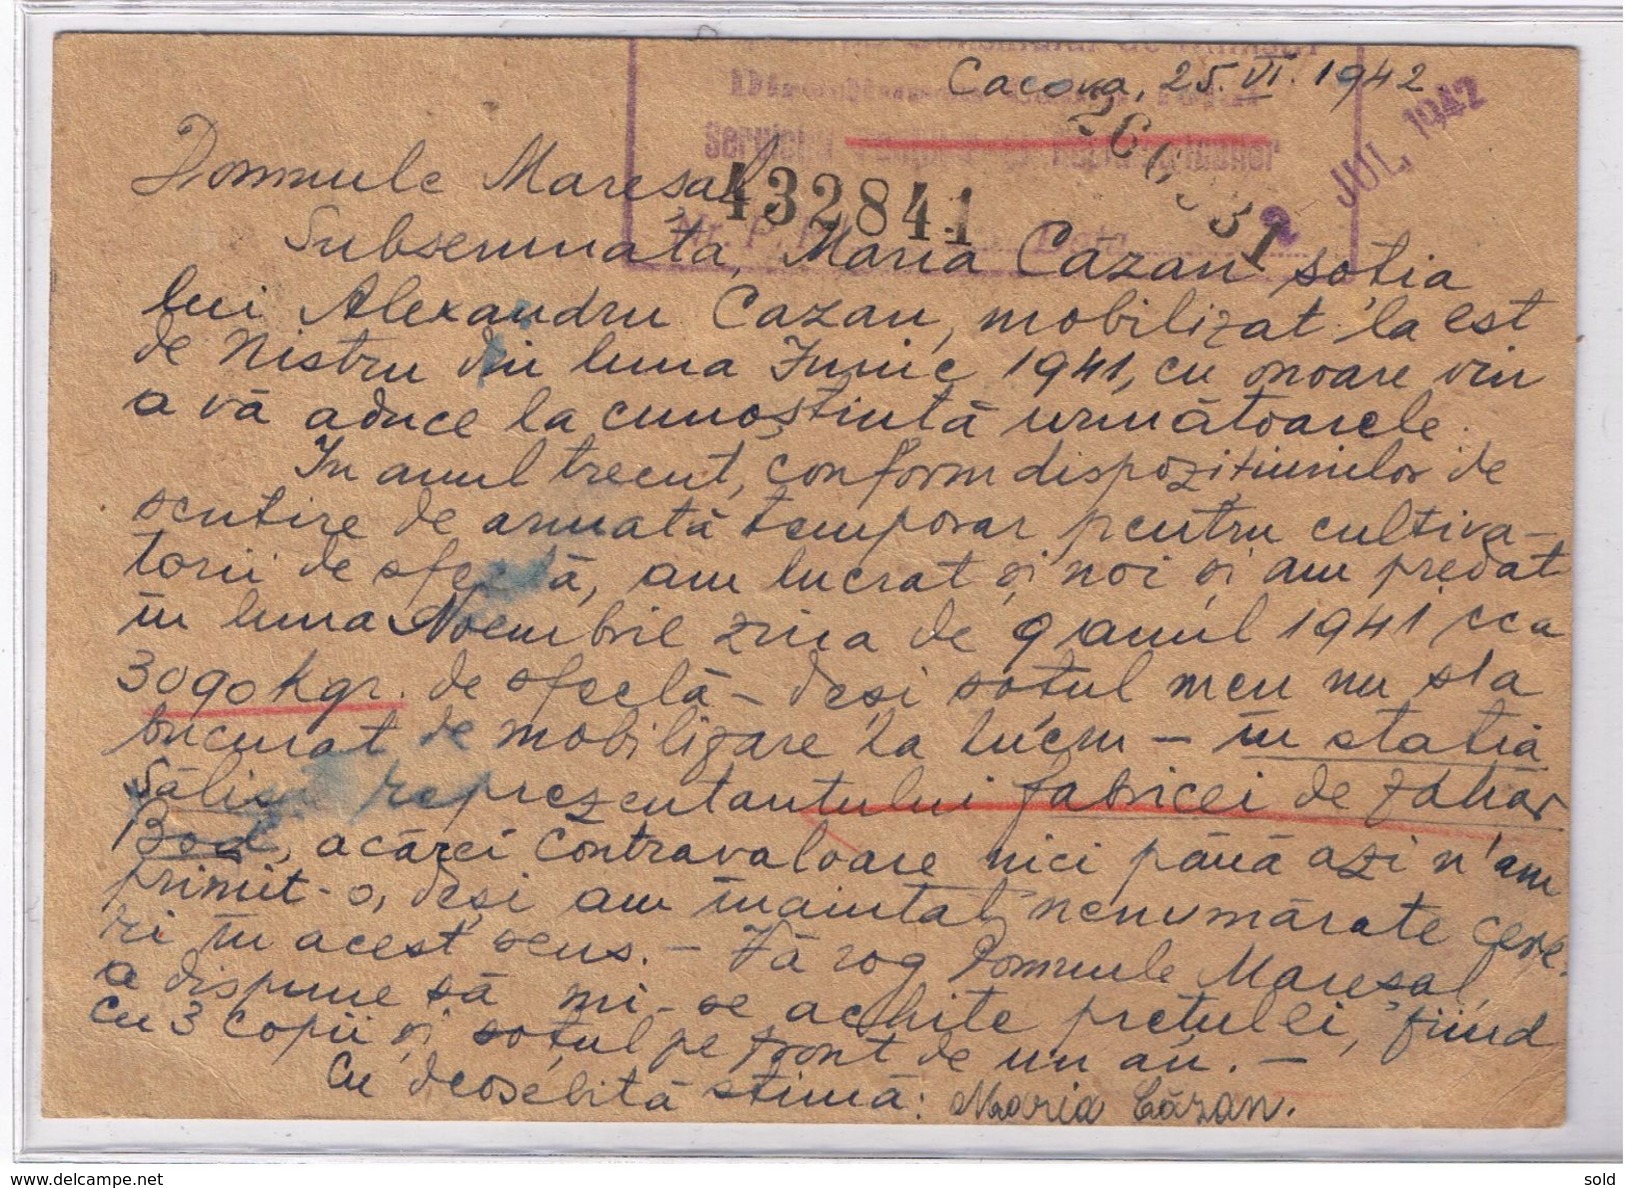 Cacova, 25.VI.1942
Serviciul
432841
Nr.
Data
2 JUL. 1942
Domnule Mareșal,
Subsemnata, Maria Cazan soția
lui Alexandru Cazan, mobilizat la est
de Nistru din luna Iunie 1941, cu onoare vin
a vă aduce la cunoștiință următoarele:
In anul trecut, conform dispozițiunilor de
scutire de armată temporar pentru cultiva-
torii de sfeclă, am lucrat și noi și am predat
în luna Noembrie ziua de 9 anul 1941 cca
3090 kgr. de sfeclă - deși soțul meu nu s'a
bucurat de mobilizare la lucru - în stația
Săliște reprezentantului fabricei de zahăr
Bod, acărei contravaloare nici până azi n'am
primit-o, deși am înaintat nenumărate cere-
ri în acest sens. - Vă rog Domnule Mareșal,
a dispune să mi-se achite prețul ei, fiind
cu 3 copii și soțul pe front de un an. -
Cu deosebită stimă: Maria Căzan.
www.delcampe.net
sold